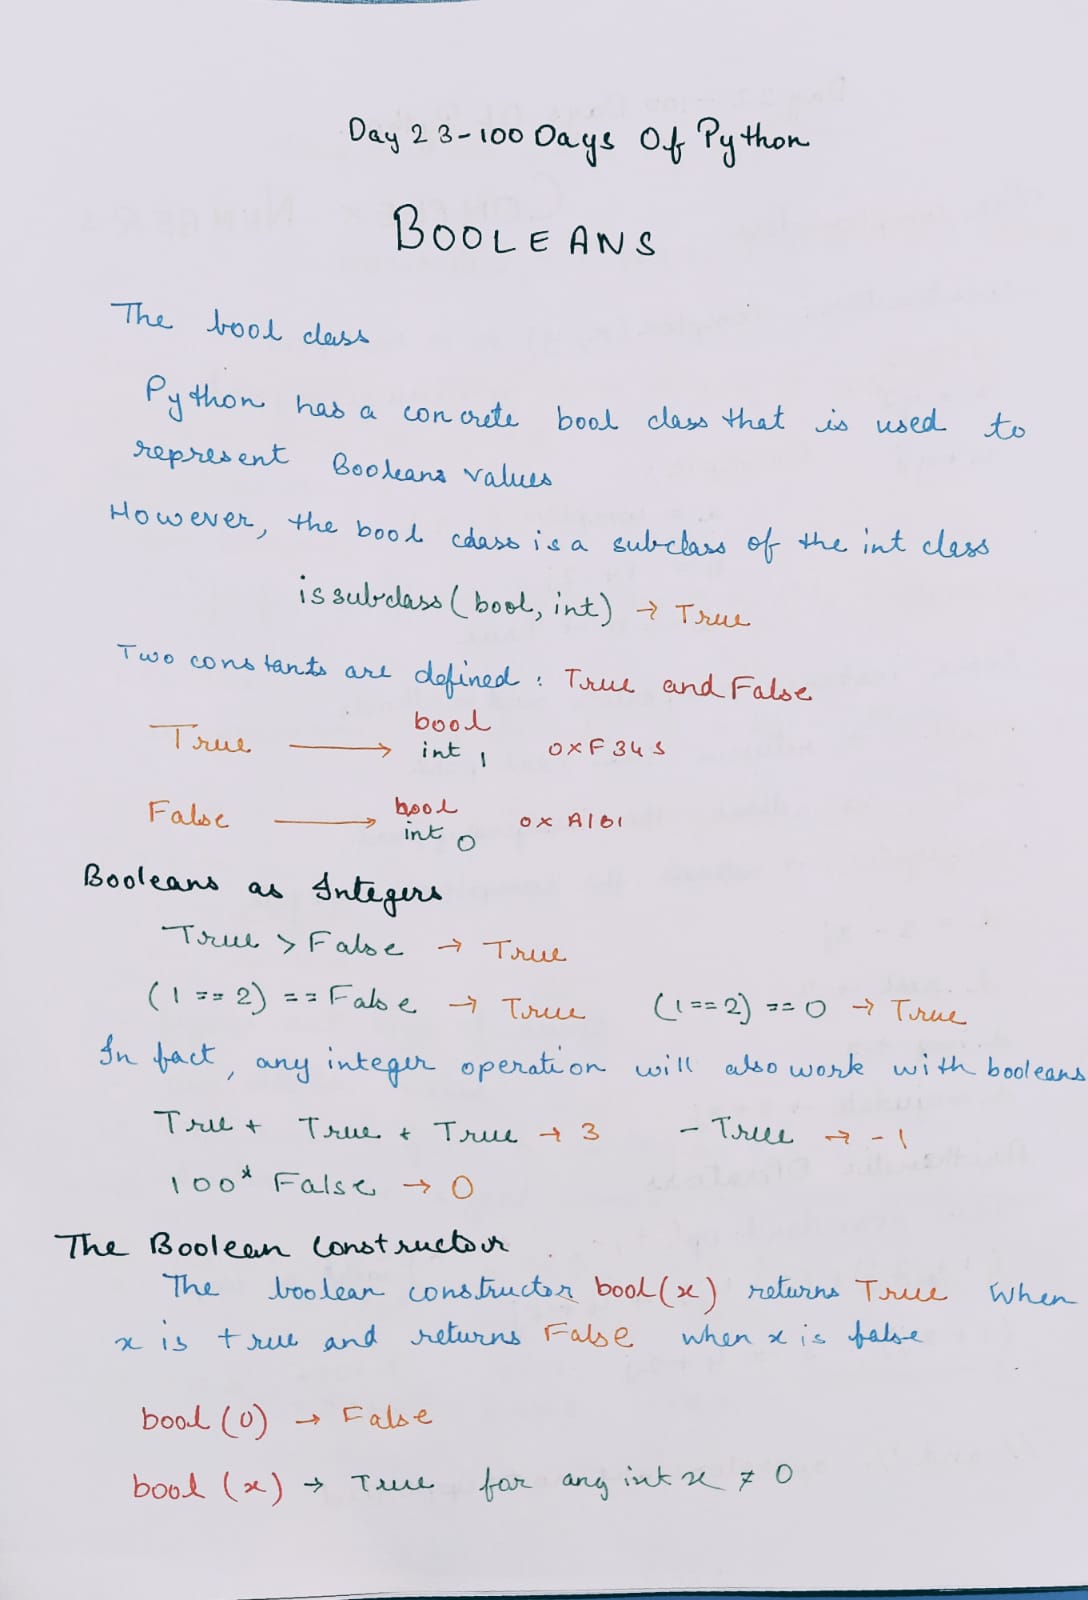 Day 23-100 Days Of Python
BOOLEANS
The bool class
Python has a concrete bool class that is used to
represent Booleans values
However, the bool class is a subclass of the int class
issubclass (bool, int) → True
Two constants are defined : True and False
True ⟶ bool
int 1 0xF345
False ⟶ bool
int 0 0xA1B1
Booleans as Integers
True > False → True
(1 == 2) == False → True (1 == 2) == 0 → True
In fact, any integer operation will also work with booleans
True + True + True → 3 - True → -1
100* False → 0
The Boolean Constructor
The boolean constructor bool(x) returns True when
x is true and returns False when x is false
bool (0) → False
bool (x) → True for any int x ≠ 0